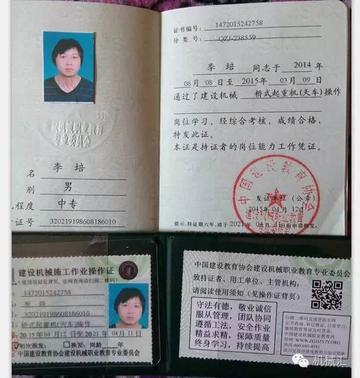 证书编号: 1472015242758
分 类 号:
李 培 同志于 2014 年
08 月 08 日至 2015 年 03 月 09 日
通过了建设机械 桥式起重机(天车)操作
岗位学习，经综合考核，成绩合格，
特发此证。
本证是持证者的岗位能力工作凭证。
中国建设教育协会
发证单位 (公章)
2015 年 04 月 12 日
李 培
别 男
程度 中专
证号
建设机械施工作业操作证
1472015242758
李 培
桥式起重机(天车)操作
中国建设教育协会建设机械职业教育专业委员会
中国建设教育协会建设机械职业教育专业委员会
致持证者、用工单位、主管机构:
请阅读使用须知 (见操作证背页)
守法有德, 敬业诚信
服从管理, 团队协同
遵循工法, 安全作业
精益求精, 保障质量
终身学习, 持续提高